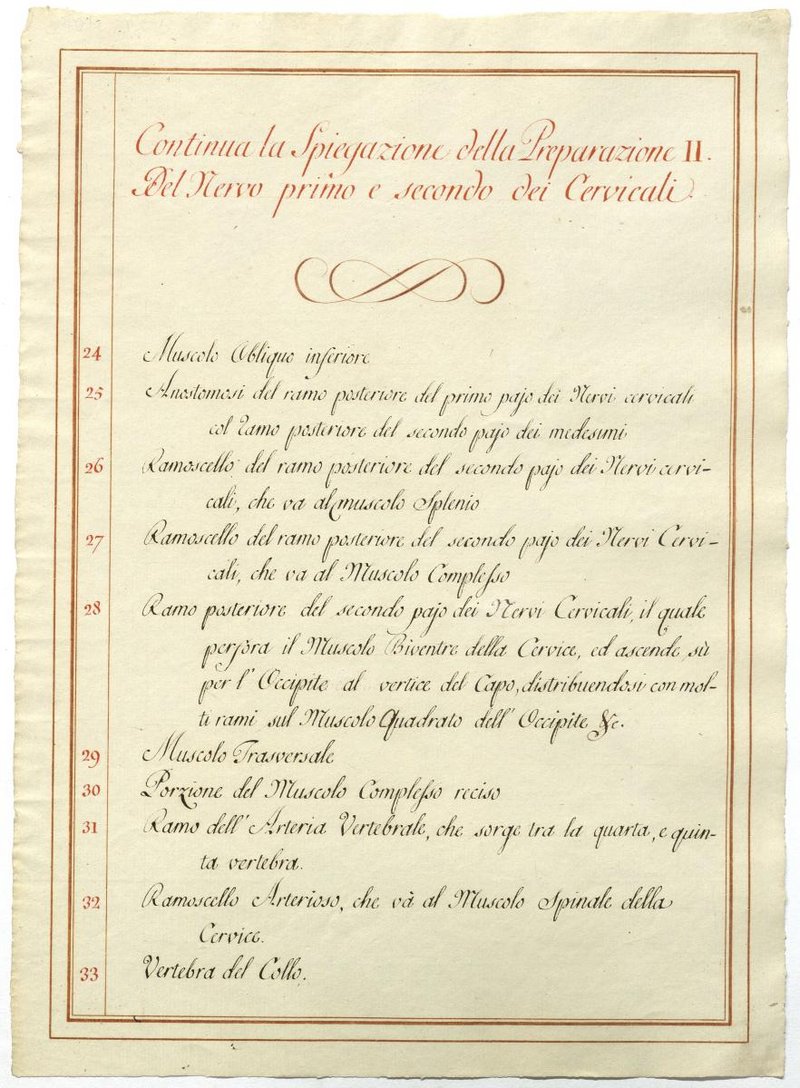 Continua la Spiegazione della Preparazione II.
Del Nervo primo e secondo dei Cervicali.
24 Muscolo Obliquo inferiore
25 Anostomosi del ramo posteriore del primo pajo dei Nervi cervicali
col ramo posteriore del secondo pajo dei medesimi
26 Ramoscello del ramo posteriore del secondo pajo dei Nervi cervi-
cali, che va al muscolo Splenio
27 Ramoscello del ramo posteriore del secondo pajo dei Nervi Cervi-
cali, che va al Muscolo Complesso
28 Ramo posteriore del secondo pajo dei Nervi Cervicali, il quale
perfora il Muscolo Biventre della Cervice, ed ascende sù
per l'Occipite al vertice del Capo, distribuendosi con mol-
ti rami sul Muscolo Quadrato dell'Occipite &c.
29 Muscolo Trasversale
30 Porzione del Muscolo Complesso reciso
31 Ramo dell'Arteria Vertebrale, che sorge tra la quarta, e quin-
ta vertebra.
32 Ramoscello Arterioso, che và al Muscolo Spinale della
Cervice.
33 Vertebra del Collo.